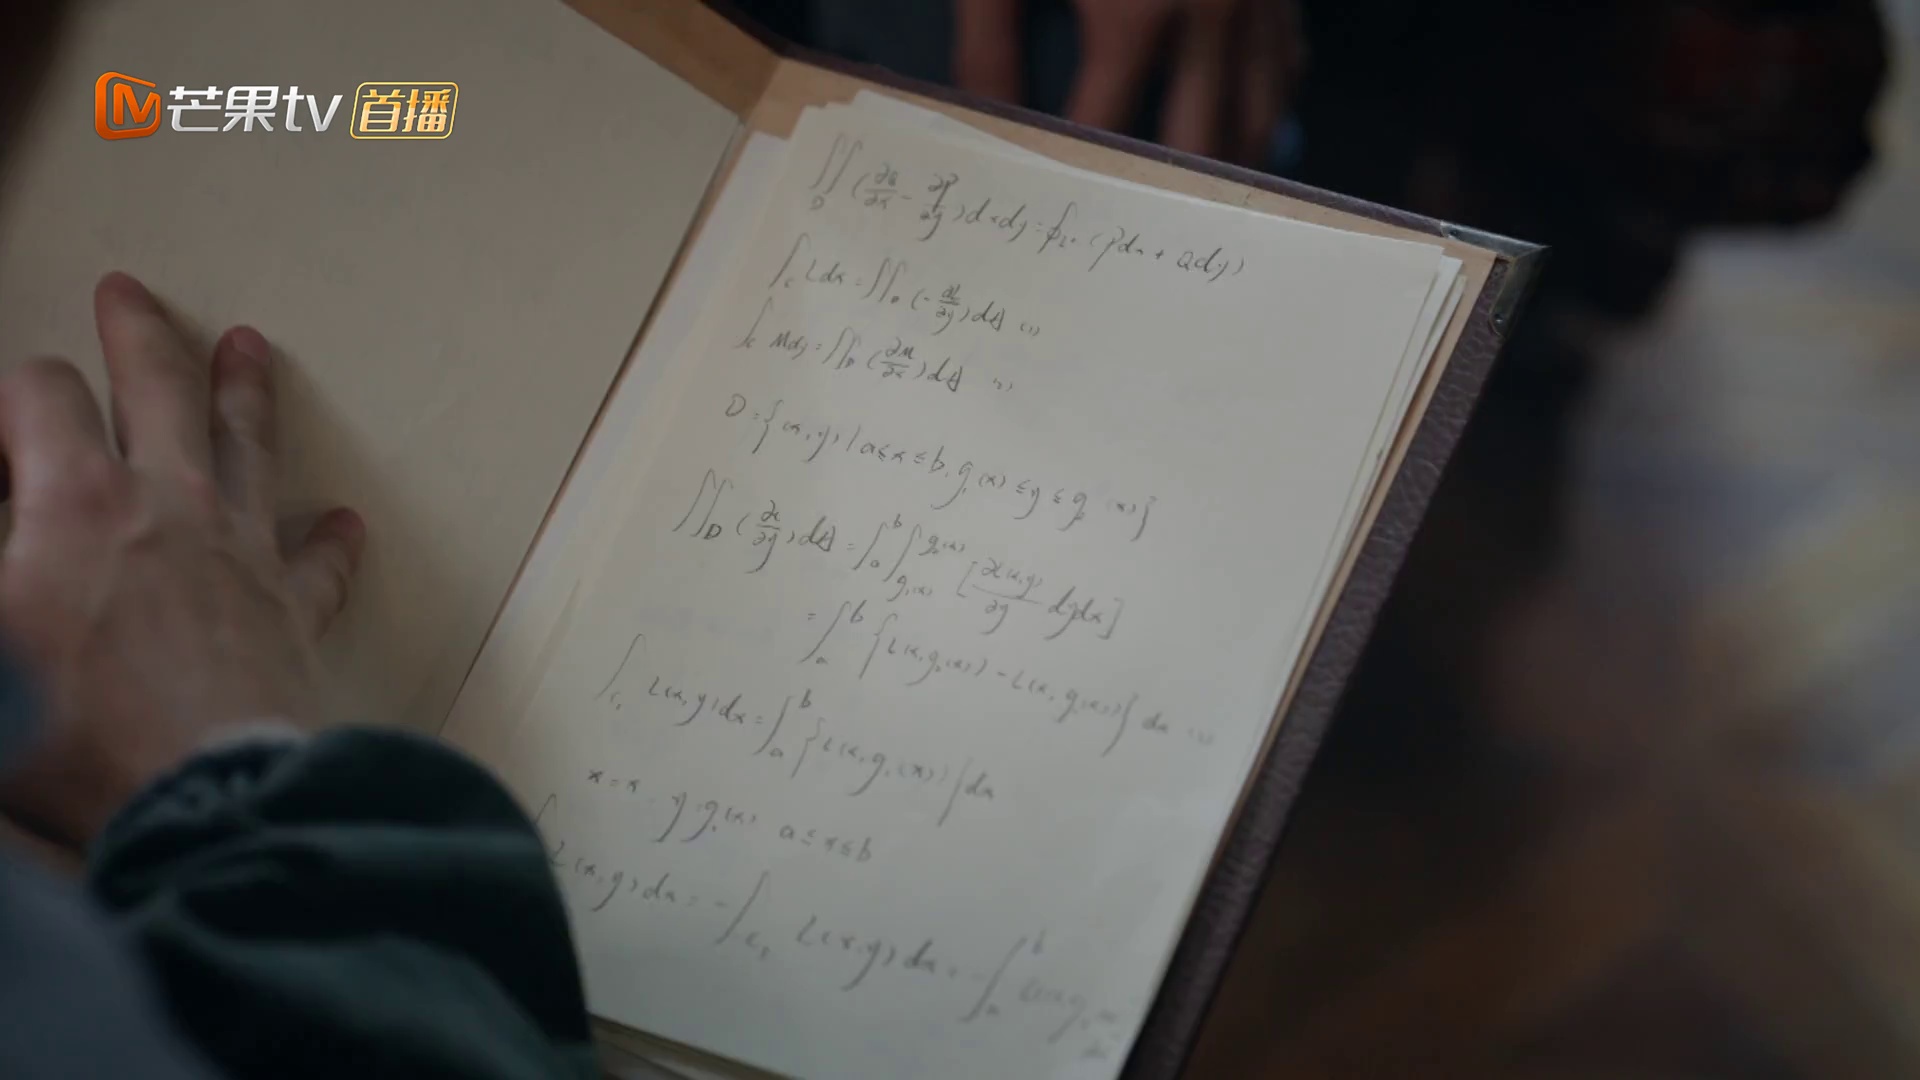 芒果tv 首播
∬_D (∂Q/∂x - ∂P/∂y) dxdy = ∮_L+ (Pdx + Qdy)
∫_C Ldx = ∬_D (-∂L/∂y) dA (1)
∫_C Mdy = ∬_D (∂M/∂x) dA (2)
D = {(x,y) | a≤x≤b, g₁(x) ≤ y ≤ g₂(x)}
∬_D (∂L/∂y) dA = ∫_a^b ∫_g₁(x)^g₂(x) [∂L(x,y)/∂y dydx]
= ∫_a^b {L(x,g₂(x)) - L(x,g₁(x))} dx
∫_C₁ L(x,y)dx = ∫_a^b {L(x,g₁(x))} dx
x=x, y=g₁(x) a≤x≤b
∫ L(x,y)dx = -∫_C₃ L(x,y)dx = -∫_a^b